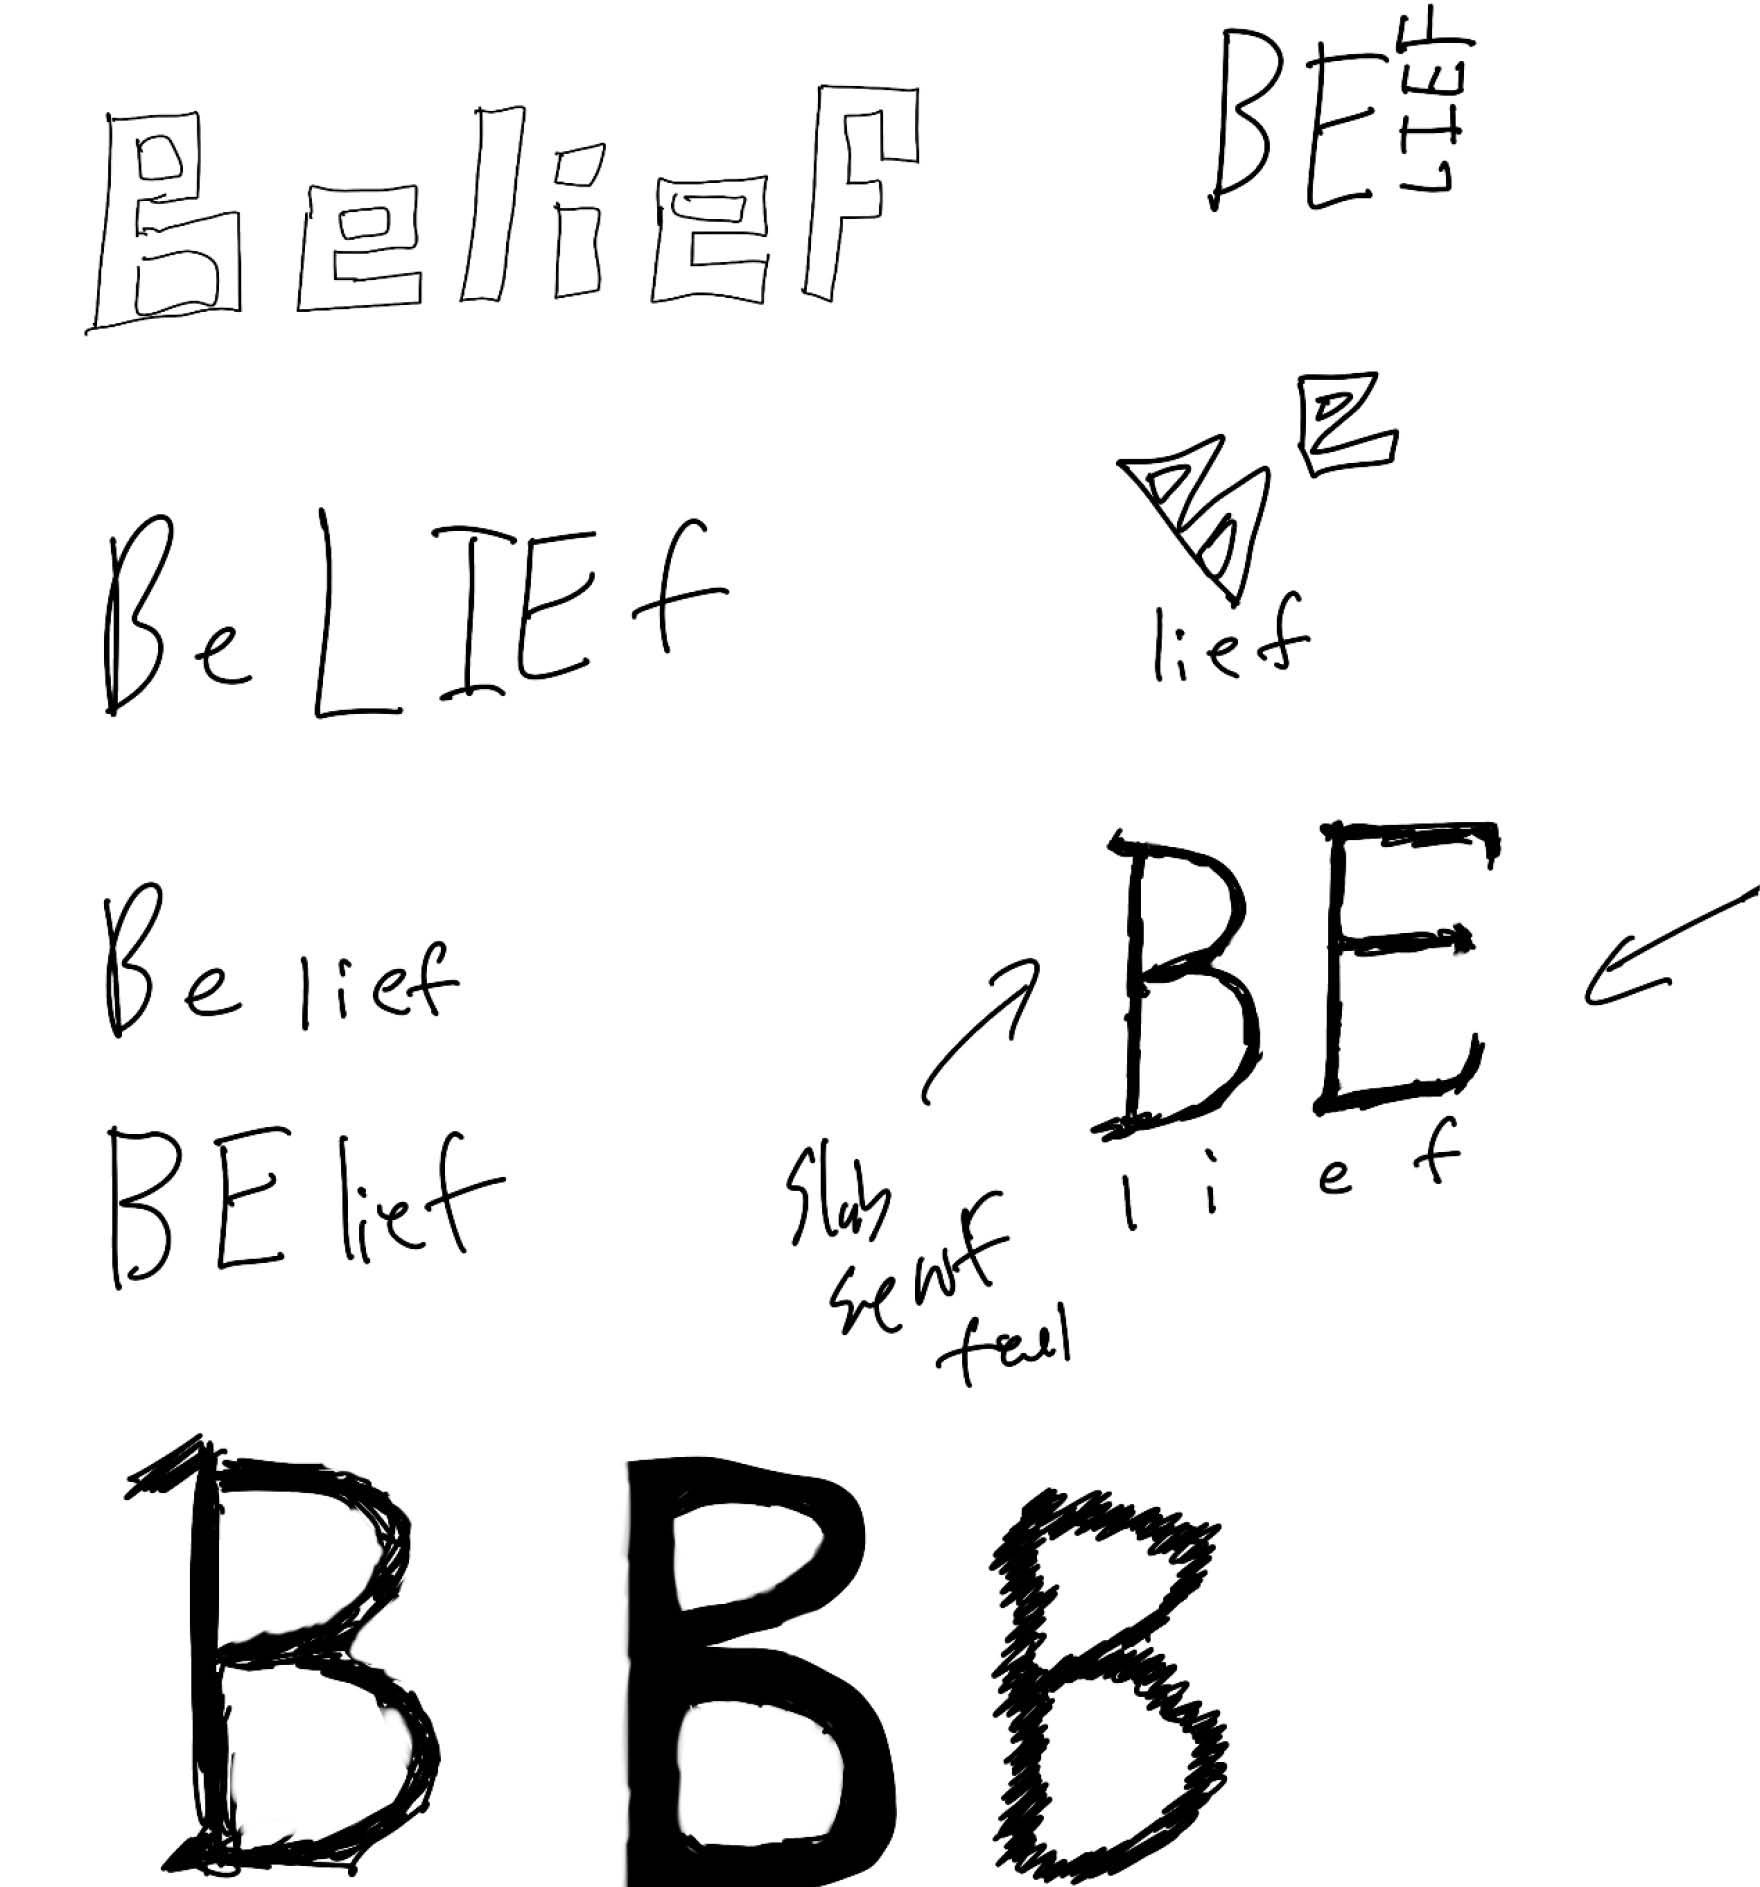 Belief
BELIEF
Be
lief
BeLIEf
Belief
BE
lief
BElief
Slab
serif
feel
B B B